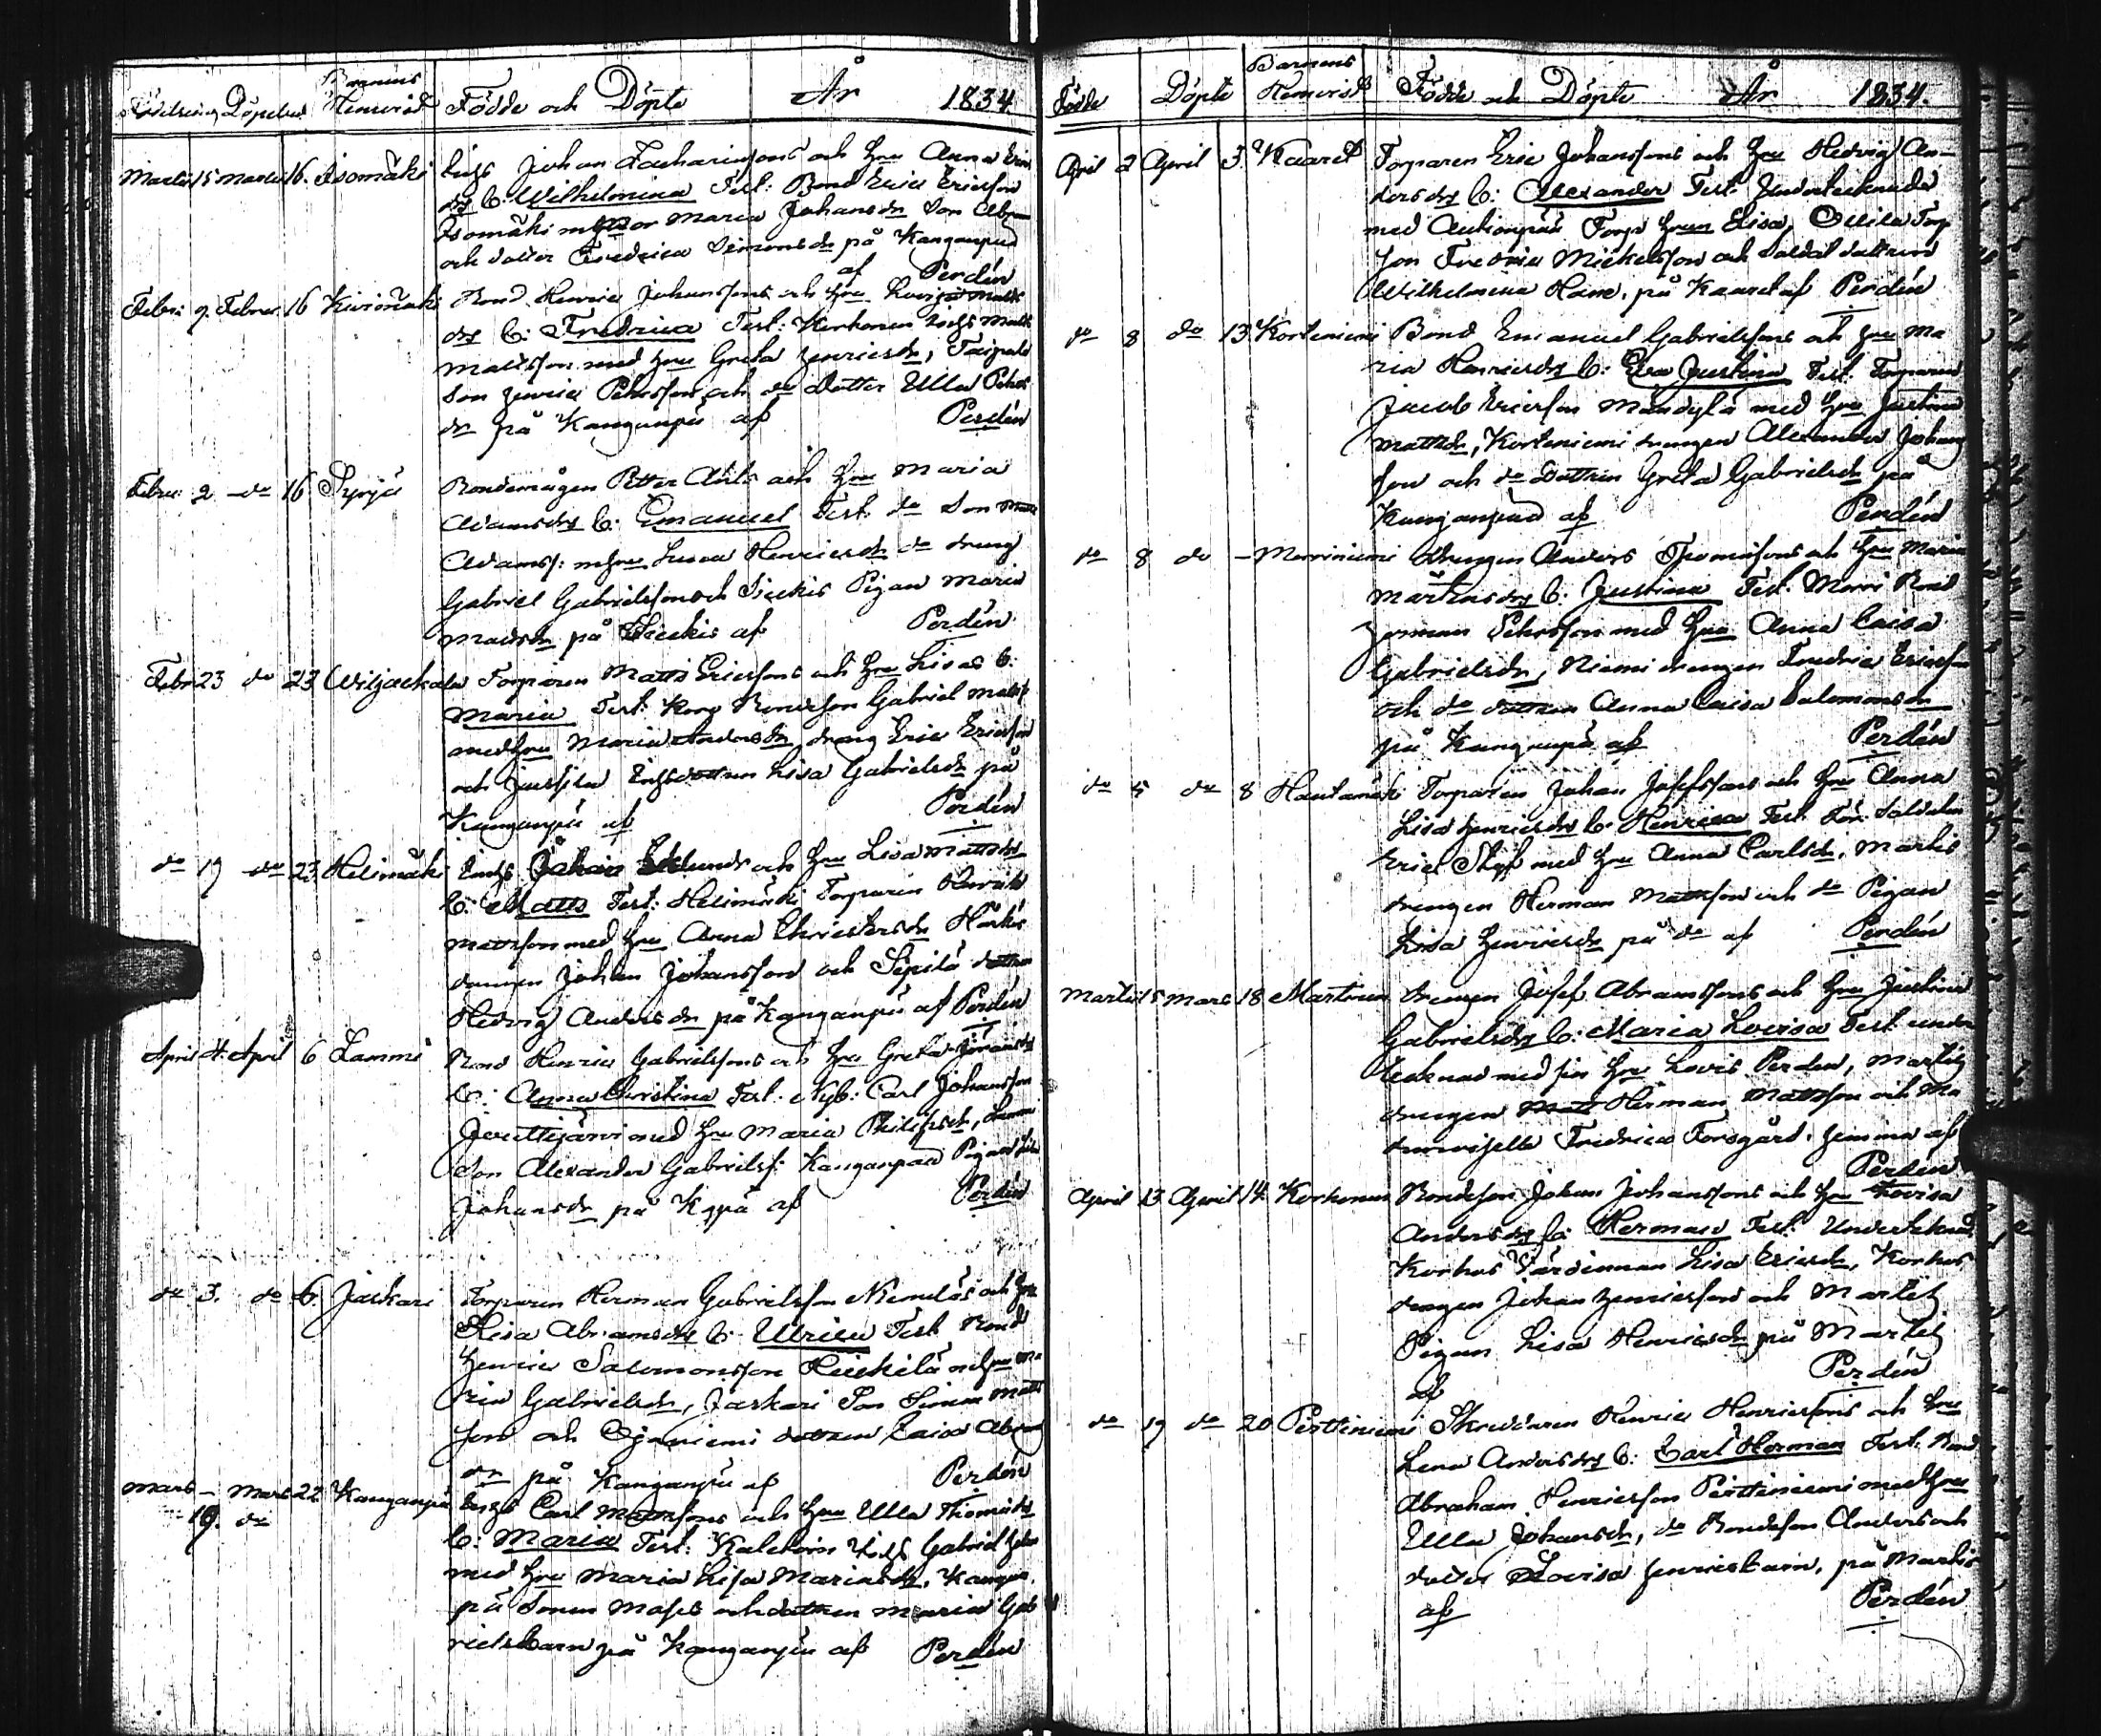 Barnens
Födelse och Döpelse Hemvist Födde och Döpte År 1834
Martii 15 Martii 16. Isomäki Inhs Johan Zachariæsons och Hru Anna Erics
dr b: Wilhelmina Test: Bond Eric Ericsson
Isomäki Maria Johansdr Son
och dotter Fredrica Simonsdr på Kanganpää
af Perdén
Febr: 9. Februr: 16 Kivimäki Bond. Henric Johanssons och Hru Lovisa Matts
dr b: Fredrica Test: Korhonen Inhs Matts
Mattsson med Hru Greta Henricsdr, Taipale
Son Henric Pehrsson och do Dotter Ulla Pehrs
dr på Kanganpä af Perdén
Febru: 2 do 16 Syrjä Bondemågen Petter och Hru Maria
Adamsdrs b: Emanuel Test. do Son Matts
Adamss: mhru Henricsdr do dreng
Gabriel Gabrielsson och Pigan Maria
på af Perdén
Febr 23 do 23 Wiljackala Torparen Matts Ericssons och Hru Lisas b:
Maria Test: Bondeson Gabriel Matss:
med hru Maria Andersdr dreng Eric Ericsson
och Jussila Inhsdottren Lisa Gabrielsdr på
Kanganpä af Perdén
do 19 do 23. Helimäki Inhs Johan och Hru Lisa Mattsdrs
b: Matts Test: Helimäki Torparen Henrik
Mattsson med Hru Anna Christersdr
drengen Johan Johansson och Sepilä dottren
Hedvig Andersdr på Kanganpä af Perdén
April 4. April 6 Lammi Bond Henric Gabrielssons och Hru Greta
b: Anna Christina Test: Nyb: Carl Johansson
Jouttijärvi med Hru Maria Philipsdr, Lammi
Son Alexander Gabrielss: Kanganpää Pigan
Johansdr på Kgpä af Perdén
do 3. do 6. Jaskari Torparen Herman Gabrielsson Niemeläs och Hru
Lisa Abramsdrs b: Ulrica Test Bond
Henric Salomonsson Heickilä mhru Ma
ria Gabrielsdr, Jaskari Son Simon Matts
son och Ojaniemi dottren Caisa Abrams
dr på Kanganpä af Perdén
Mars – Mars 22 Kanganpä Inhs Carl Mattssons och Hru Ulla Thomædr
19. do b: Maria Test: Inhs Gabriel
med Hru Maria Lisa Mariædr, Kangan
pä Sonen Moses och dottren Maria Gab
rielsbarn på Kanganpä af Perdén
Barnens
Födde Döpte Hemvist Födde och Döpte År 1834.
April 2 April 3. Kaaret Torparen Eric Johanssons och Hru Hedvig An-
dersdrs b: Alexander Test: Undertecknade
med Torp hrun Lisa, Torp
Son Fredric Mickelsson och Soldat dottren
Wilhelmina Hane, på Kaaret af Perdén
do 8 do 13 Korteniemi Bond Emanuel Gabrielssons och Hru Ma
ria Henricsdrs b: Eva Justina Test. Torparen
Jacob Ericsson Mändylä med Hru Justina
Mattsdr, Korteniemi drengen Alexander Johans
son och do Dottren Greta Gabrielsdr på
Kanganpää af Perdén
do 8 do – Morriniemi Drengen Anders Thomæsons och Hru Maria
Mårtensdrs b: Justina Test. Morri Bond
Herman Pehrsson med Hru Anna Caisa
Gabrielsdr, Niemi drengen Fredric Ericsson
och do dottren Anna Caisa Salomonsdr
på Kanganpä af Perdén
do 5 do 8 Hautamäki Torparen Johan Josefssons och Hru Anna
Lisa Henricsdrs b: Henrica Test. För: Soldaten
Eric med Hru Anna Carlsdr, Martis
drengen Herman Mattsson och do Pigan
Lisa Henricsdr på do af Perdén
Martii 15 Mars 18 Marttinen Drengen Josef Abramssons och Hru Justina
Gabrielsdrs b: Maria Lovisa Test. under
tecknad med sin Hru Lovis. Perdén, Martis
drengen Herman Mattsson och Ma
demoiselle Fredrica Forsgård, hemma af
Perdén
April 13 April 14. Korhonen Bondeson Johan Johanssons och Hru Lovisa
Andersdrs b: Herman Test: Undertecknad
Korhos Värdinnan Lisa Ericsdr, Korhos
drengen Johan Henricsson och Martis
Pigan Lisa Henricsdr på Martis
af Perdén
do 19 do 20 Perttiniemi Skreddaren Henric Henricssons och Hru
Lena Andersdrs b: Carl Herman Test. Bond
Abraham Henricsson Perttiniemi med Hru
Ulla Johansdr, do Bondeson Anders och
dotter Lovisa Henricsbarn, på Martis
af Perdén